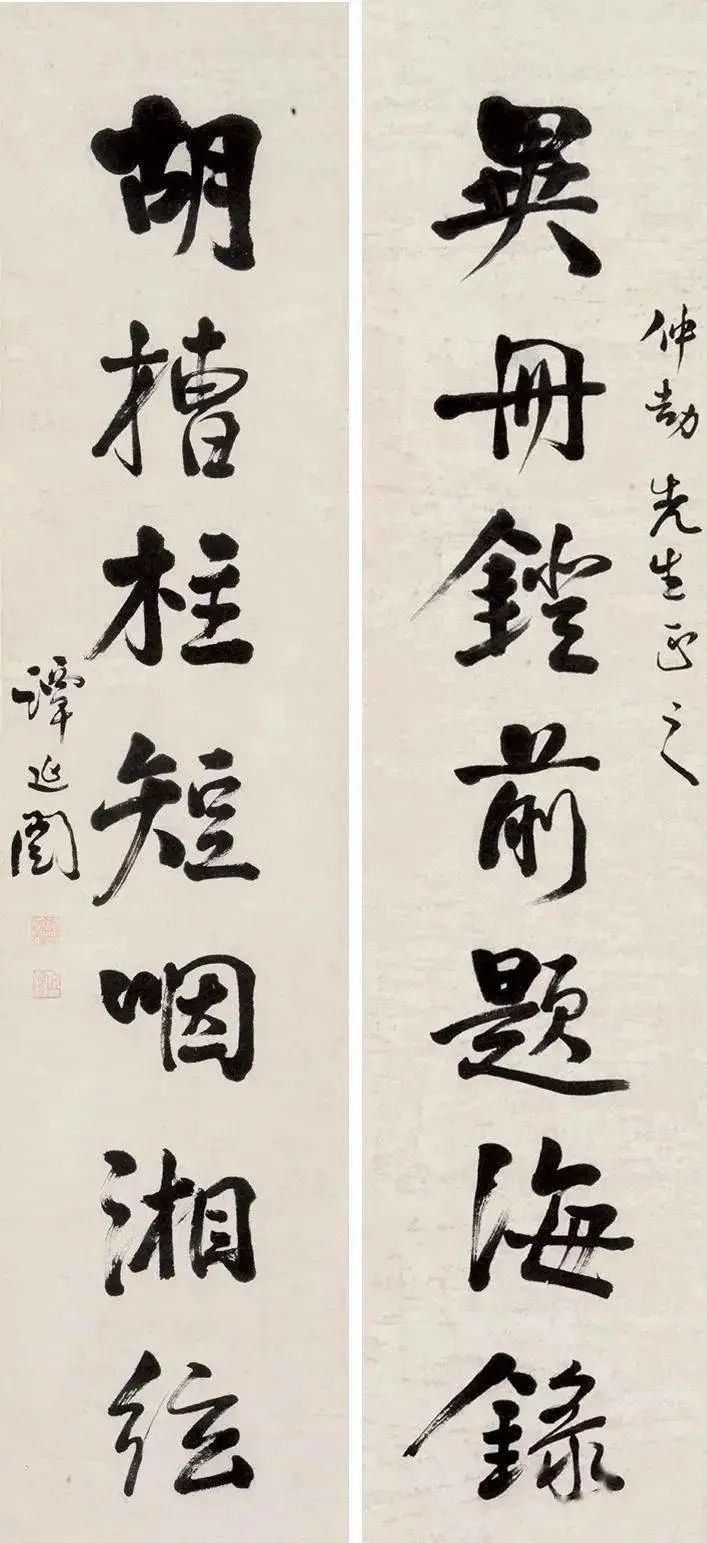 仲劼先生正之
異冊鐙前題海錄
胡槽柱短咽湘絃
譚延闓